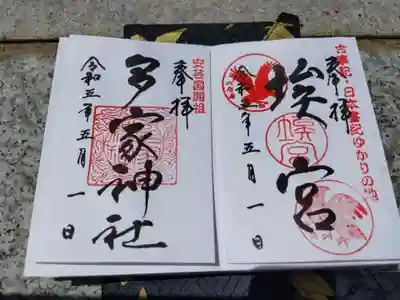 古事記・日本書紀ゆかりの地
奉拝
埃宮
埃宮
令和五年五月一日
安芸国開祖
奉拝
多家神社
令和五年五月一日